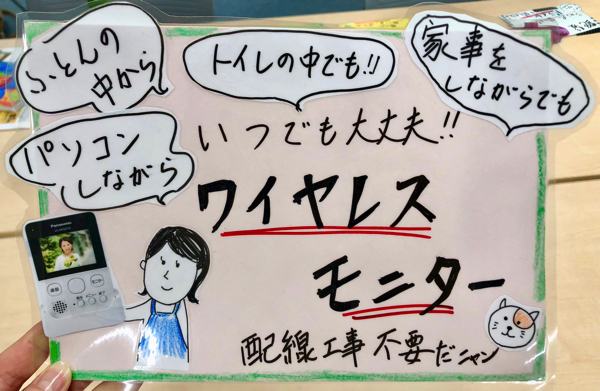 ふとんの
中から
トイレの中でも!!
家事を
しながらでも
パソコン
しながら
いつでも大丈夫!!
ワイヤレス
モニター
Panasonic
配線工事不要だニャン